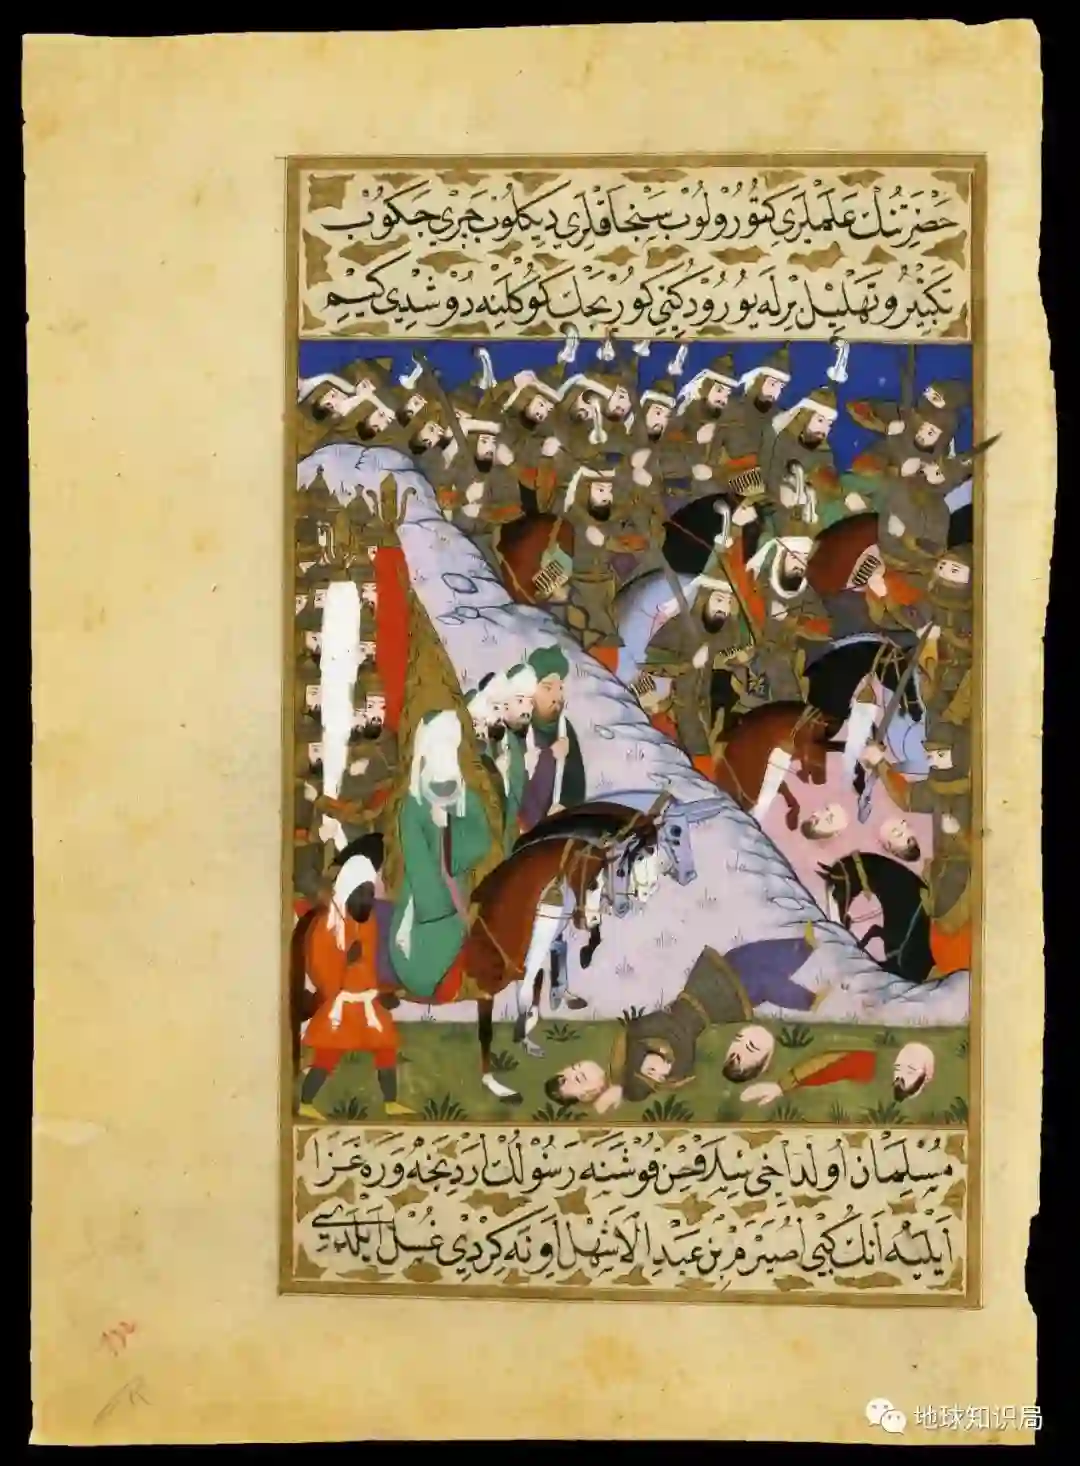 حَضْرَتِنُكْ عَلَمْلَرِي كَتُورُولُوبْ سَنْجَاقْلَرِي دِيكِلُوبْ جَرِي جَكُوبْ
تَكْبِيرُ وتَهْلِيلْ بِرْلَه يُورُودُكِنِي كُورِيجَكْ كُوكْلِنَه دُوشْدِي كِيمْ
مُسْلِمَان اُولَا دَاخِي سِلَاحِنْ قُوشَنَه رَسُولُكْ اَرْدِنْجَه وَرَه غَزَا
اَيْلَيَه اَنُكْ كِبِي اُصَيْرَمْ بِنْ عَبْدِ الْاَشْهَلْ اَوِنَه كِرْدِي غُسْلْ اَيْلَدِي
地球知识局